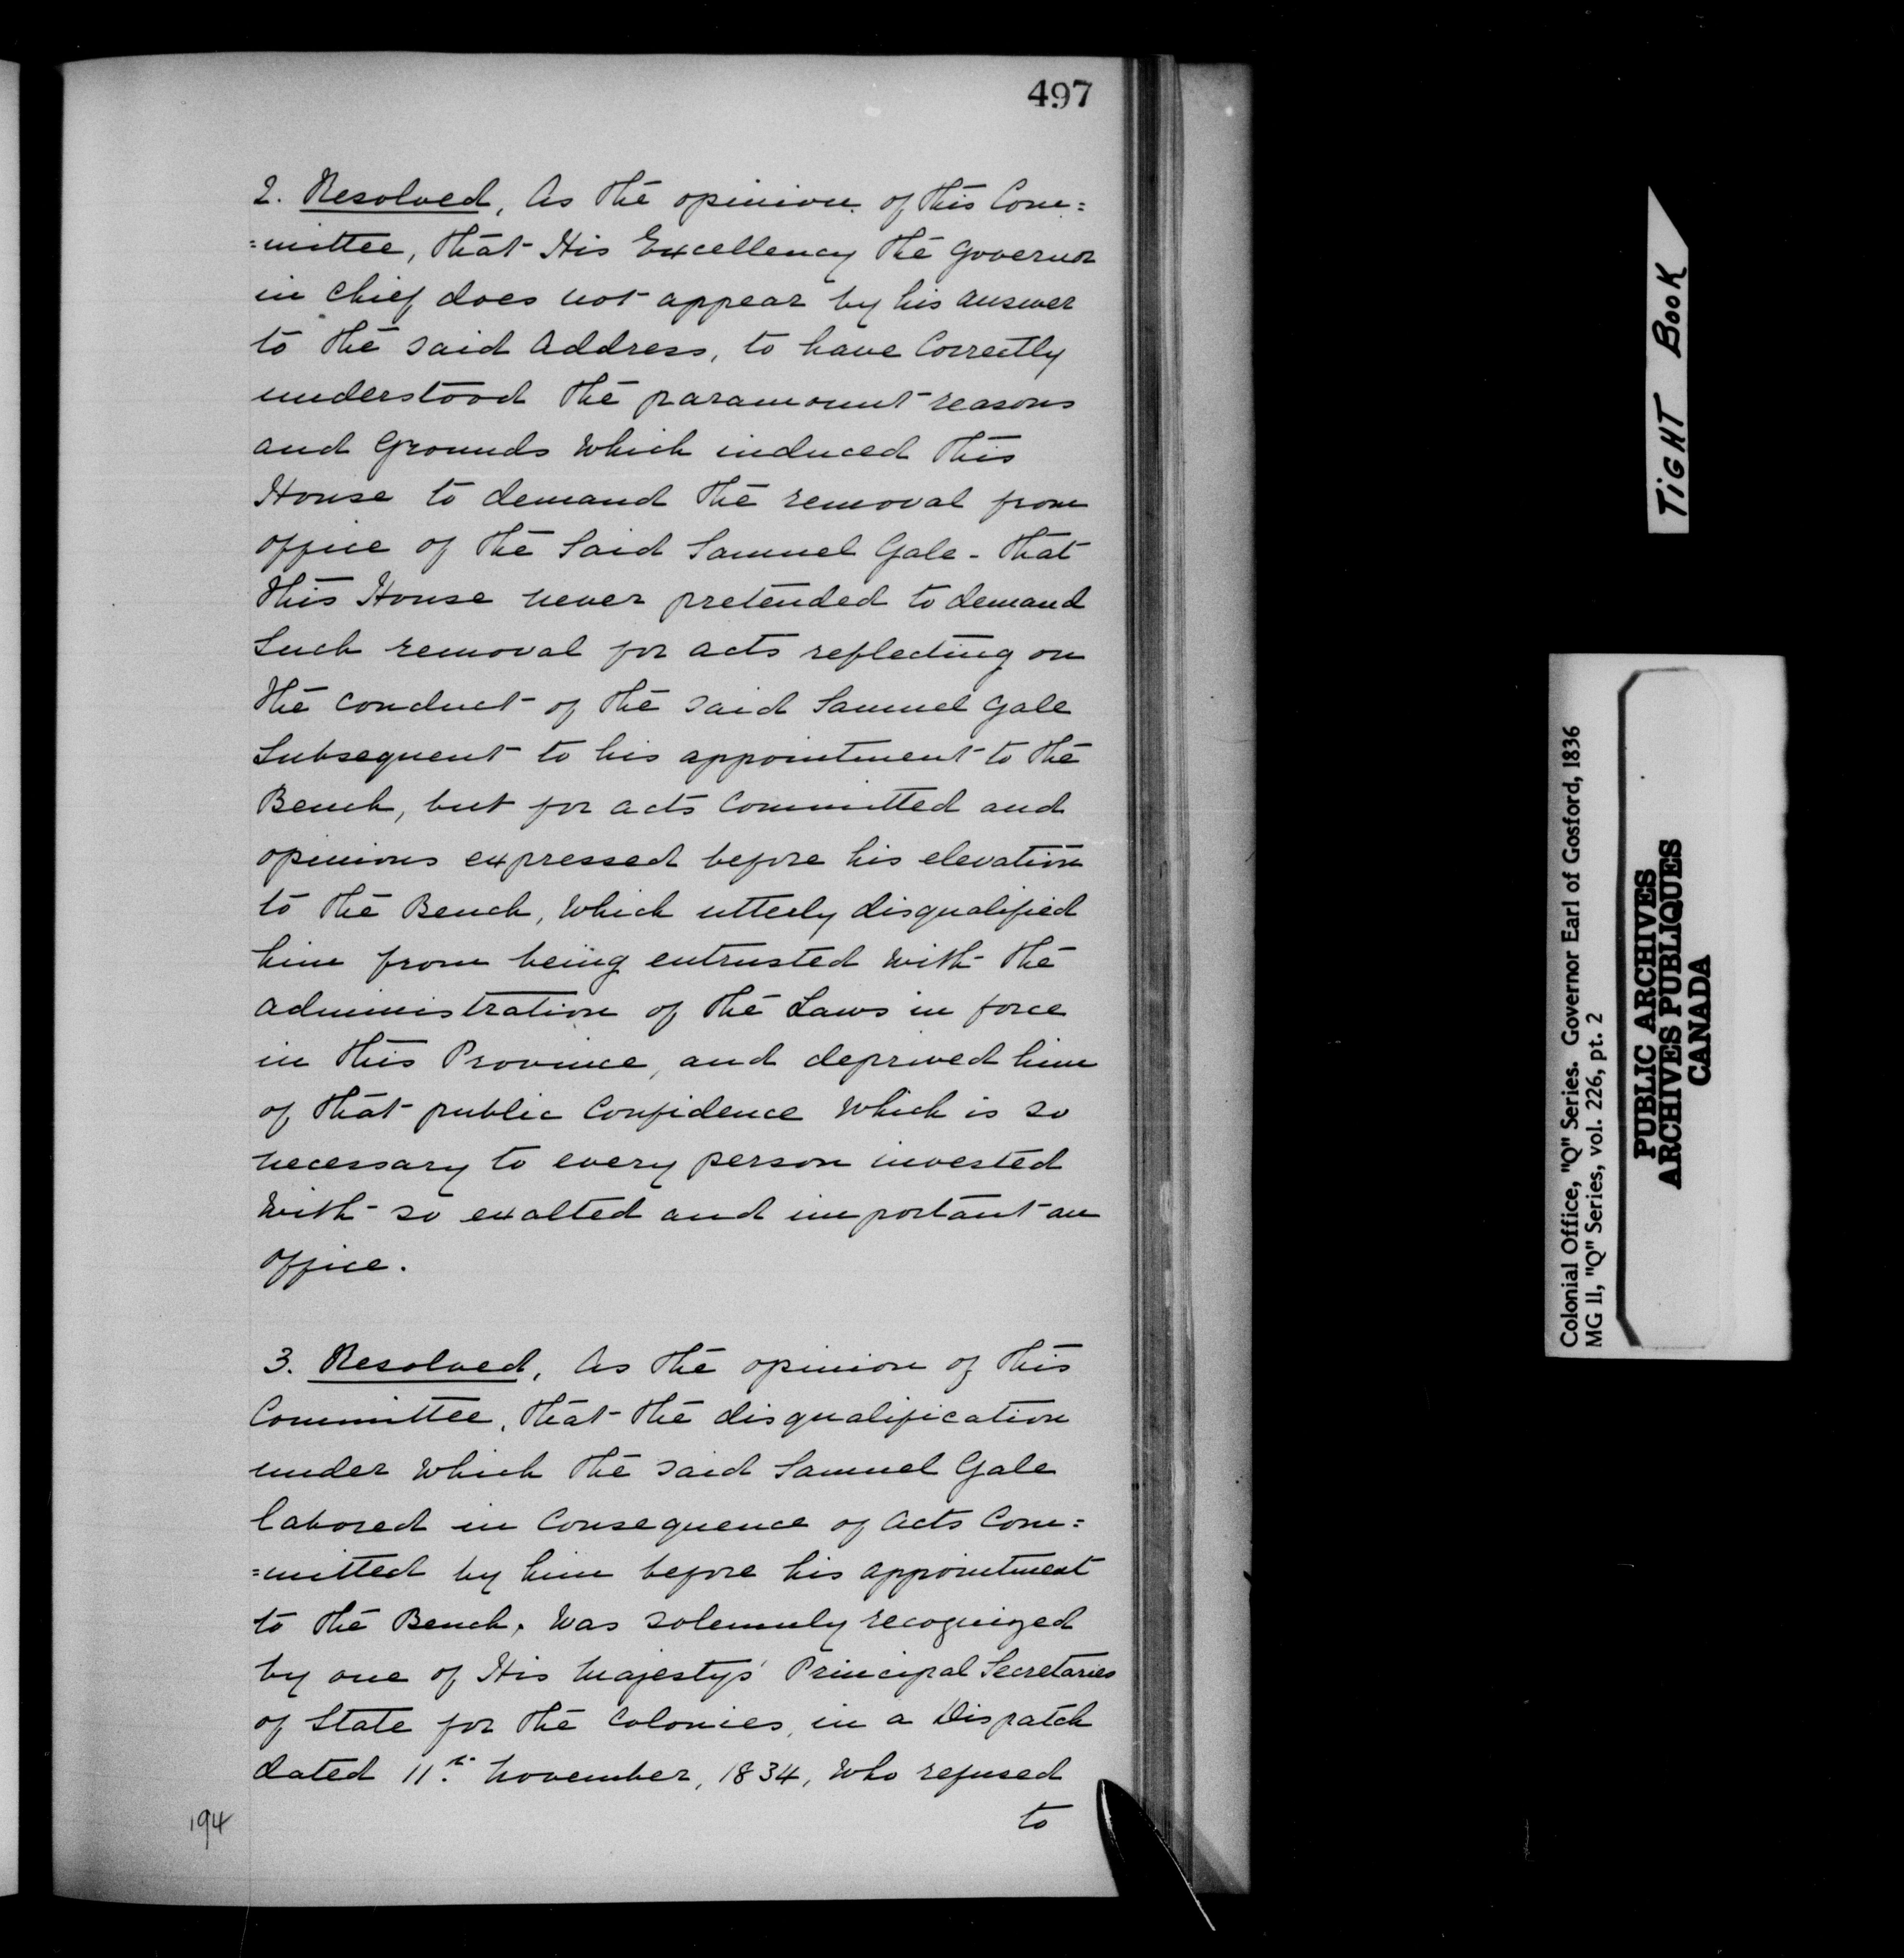 497
2. Resolved, As the opinion of this Com=
=mittee, that His Excellency the Governor
in chief does not appear by his answer
to the said Address, to have Correctly
understood the paramount reasons
and Grounds Which induced this
House to demand the removal from
office of the Said Samuel Gale - that
this House never pretended to demand
Such removal for acts reflecting on
the conduct of the said Samuel Gale
Subsequent to his appointment to the
Bench, but for acts Committed and
opinions expressed before his elevation
to the Bench, Which utterly disqualified
him from being entrusted With the
administration of the Laws in force
in this Province, and deprived him
of that public Confidence Which is so
necessary to every person invested
With so exalted and important an
office.
3. Resolved, As the opinion of this
Committee, that the disqualification
under Which the said Samuel Gale
labored in Consequence of Acts Com=
=mitted by him before his appointment
to the Bench, Was solemnly recognized
by one of His Majesty's Principal Secretaries
of State for the Colonies, in a Dispatch
dated 11th November, 1834, Who refused
to
194
TIGHT BOOK
Colonial Office, "Q" Series. Governor Earl of Gosford, 1836
MG 11, "Q" Series, vol. 226, pt. 2
PUBLIC ARCHIVES
ARCHIVES PUBLIQUES
CANADA